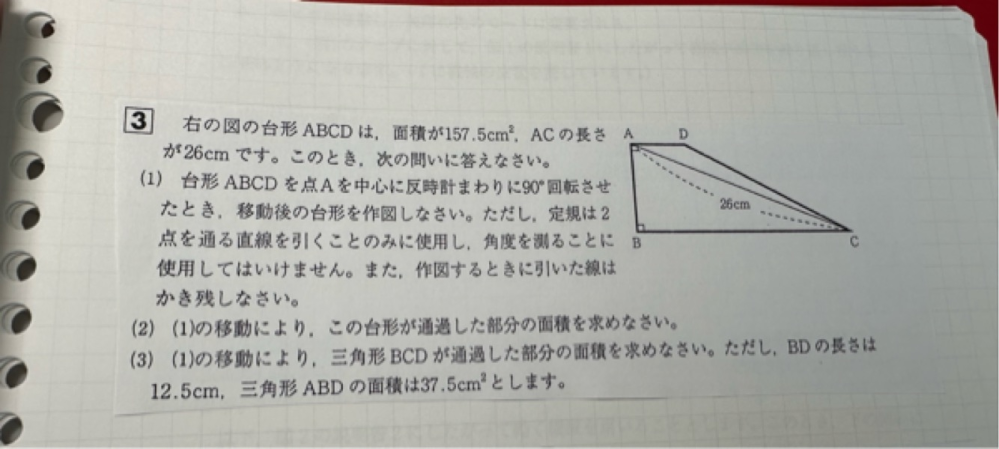 3 右の図の台形ABCDは，面積が157.5cm²，ACの長さ
が26cmです。このとき，次の問いに答えなさい。
(1) 台形ABCDを点Aを中心に反時計まわりに90°回転させ
たとき，移動後の台形を作図しなさい。ただし，定規は2
点を通る直線を引くことのみに使用し，角度を測ることに
使用してはいけません。また，作図するときに引いた線は
かき残しなさい。
(2) (1)の移動により，この台形が通過した部分の面積を求めなさい。
(3) (1)の移動により，三角形BCDが通過した部分の面積を求めなさい。ただし，BDの長さは
12.5cm，三角形ABDの面積は37.5cm²とします。
A D
26cm
B C